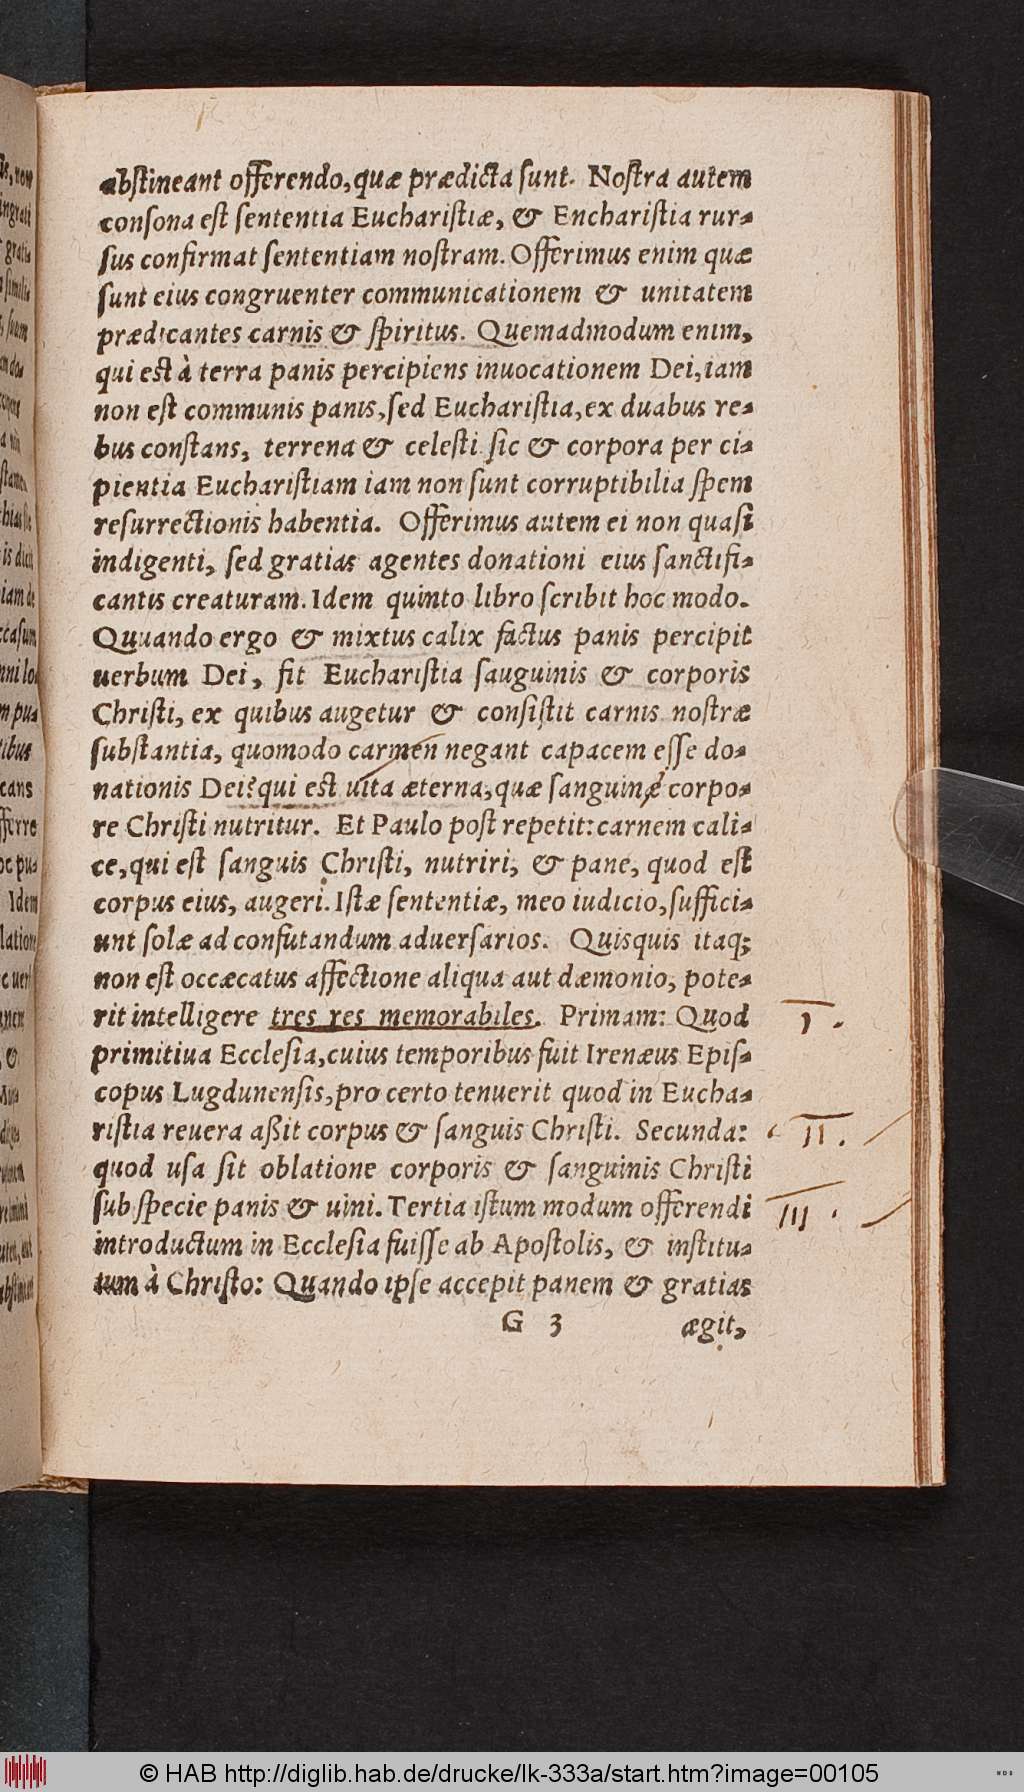 abstineant offerendo, quæ prædicta sunt. Nostra autem
consona est sententia Eucharistiæ, & Encharistia rur-
sus confirmat sententiam nostram. Offerimus enim quæ
sunt eius congruenter communicationem & unitatem
prædicantes carnis & spiritus. Quemadmodum enim,
qui est à terra panis percipiens inuocationem Dei, iam
non est communis panis, sed Eucharistia, ex duabus re-
bus constans, terrena & celesti sic & corpora per ci-
pientia Eucharistiam iam non sunt corruptibilia spem
resurrectionis habentia. Offerimus autem ei non quasi
indigenti, sed gratias agentes donationi eius sanctifi-
cantis creaturam. Idem quinto libro scribit hoc modo.
Quuando ergo & mixtus calix factus panis percipit
uerbum Dei, fit Eucharistia sauguinis & corporis
Christi, ex quibus augetur & consistit carnis nostræ
substantia, quomodo carmen negant capacem esse do-
nationis Dei? qui est uita æterna, quæ sanguine corpo-
re Christi nutritur. Et Paulo post repetit: carnem cali-
ce, qui est sanguis Christi, nutriri, & pane, quod est
corpus eius, augeri. Istæ sententiæ, meo iudicio, suffici-
unt solæ ad confutandum aduersarios. Quisquis itaq;
non est occæcatus affectione aliqua aut dæmonio, pote-
rit intelligere tres res memorabiles. Primam: Quod
primitiua Ecclesia, cuius temporibus fuit Irenæus Epis-
copus Lugdunensis, pro certo tenuerit quod in Eucha-
ristia reuera aßit corpus & sanguis Christi. Secunda:
quod usa sit oblatione corporis & sanguinis Christi
sub specie panis & uini. Tertia istum modum offerendi
introductum in Ecclesia fuisse ab Apostolis, & institu-
tum à Christo: Quando ipse accepit panem & gratias
G 3 ægit,
I.
II.
III.
© HAB http://diglib.hab.de/drucke/lk-333a/start.htm?image=00105